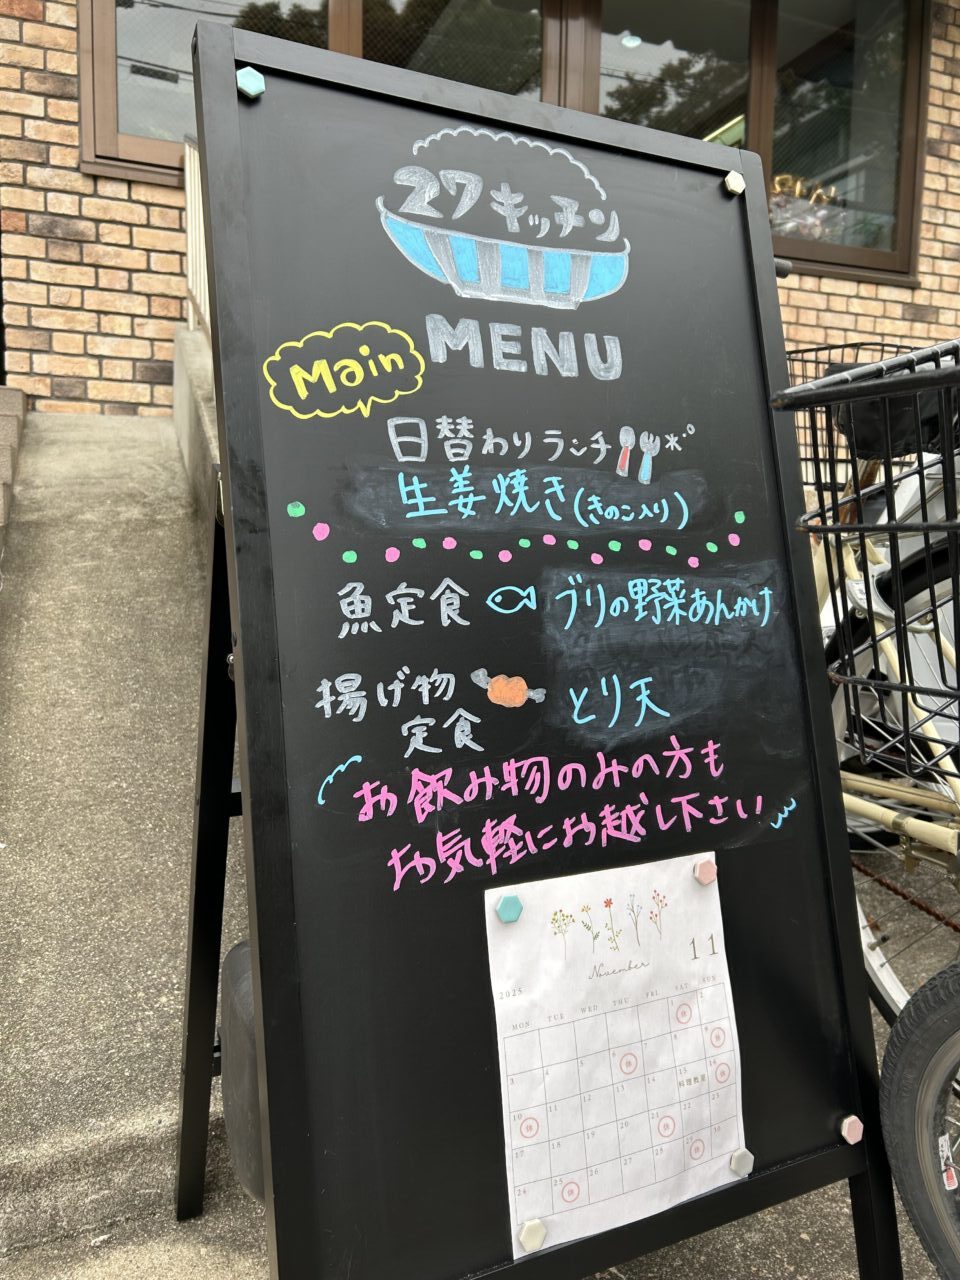 27キッチン
MENU
Main
日替わりランチ
生姜焼き(きのこ入り)
魚定食 ブリの野菜あんかけ
揚げ物 とり天
定食
お飲み物のみの方も
お気軽にお越し下さい
November 11
2025
MON TUE WED THU FRI SAT SUN
1 2
休
3 4 5 6 7 8 9
休 休
10 11 12 13 14 15 16
休 料理教室 休
17 18 19 20 21 22 23
休
24 25 26 27 28 29 30
休 休